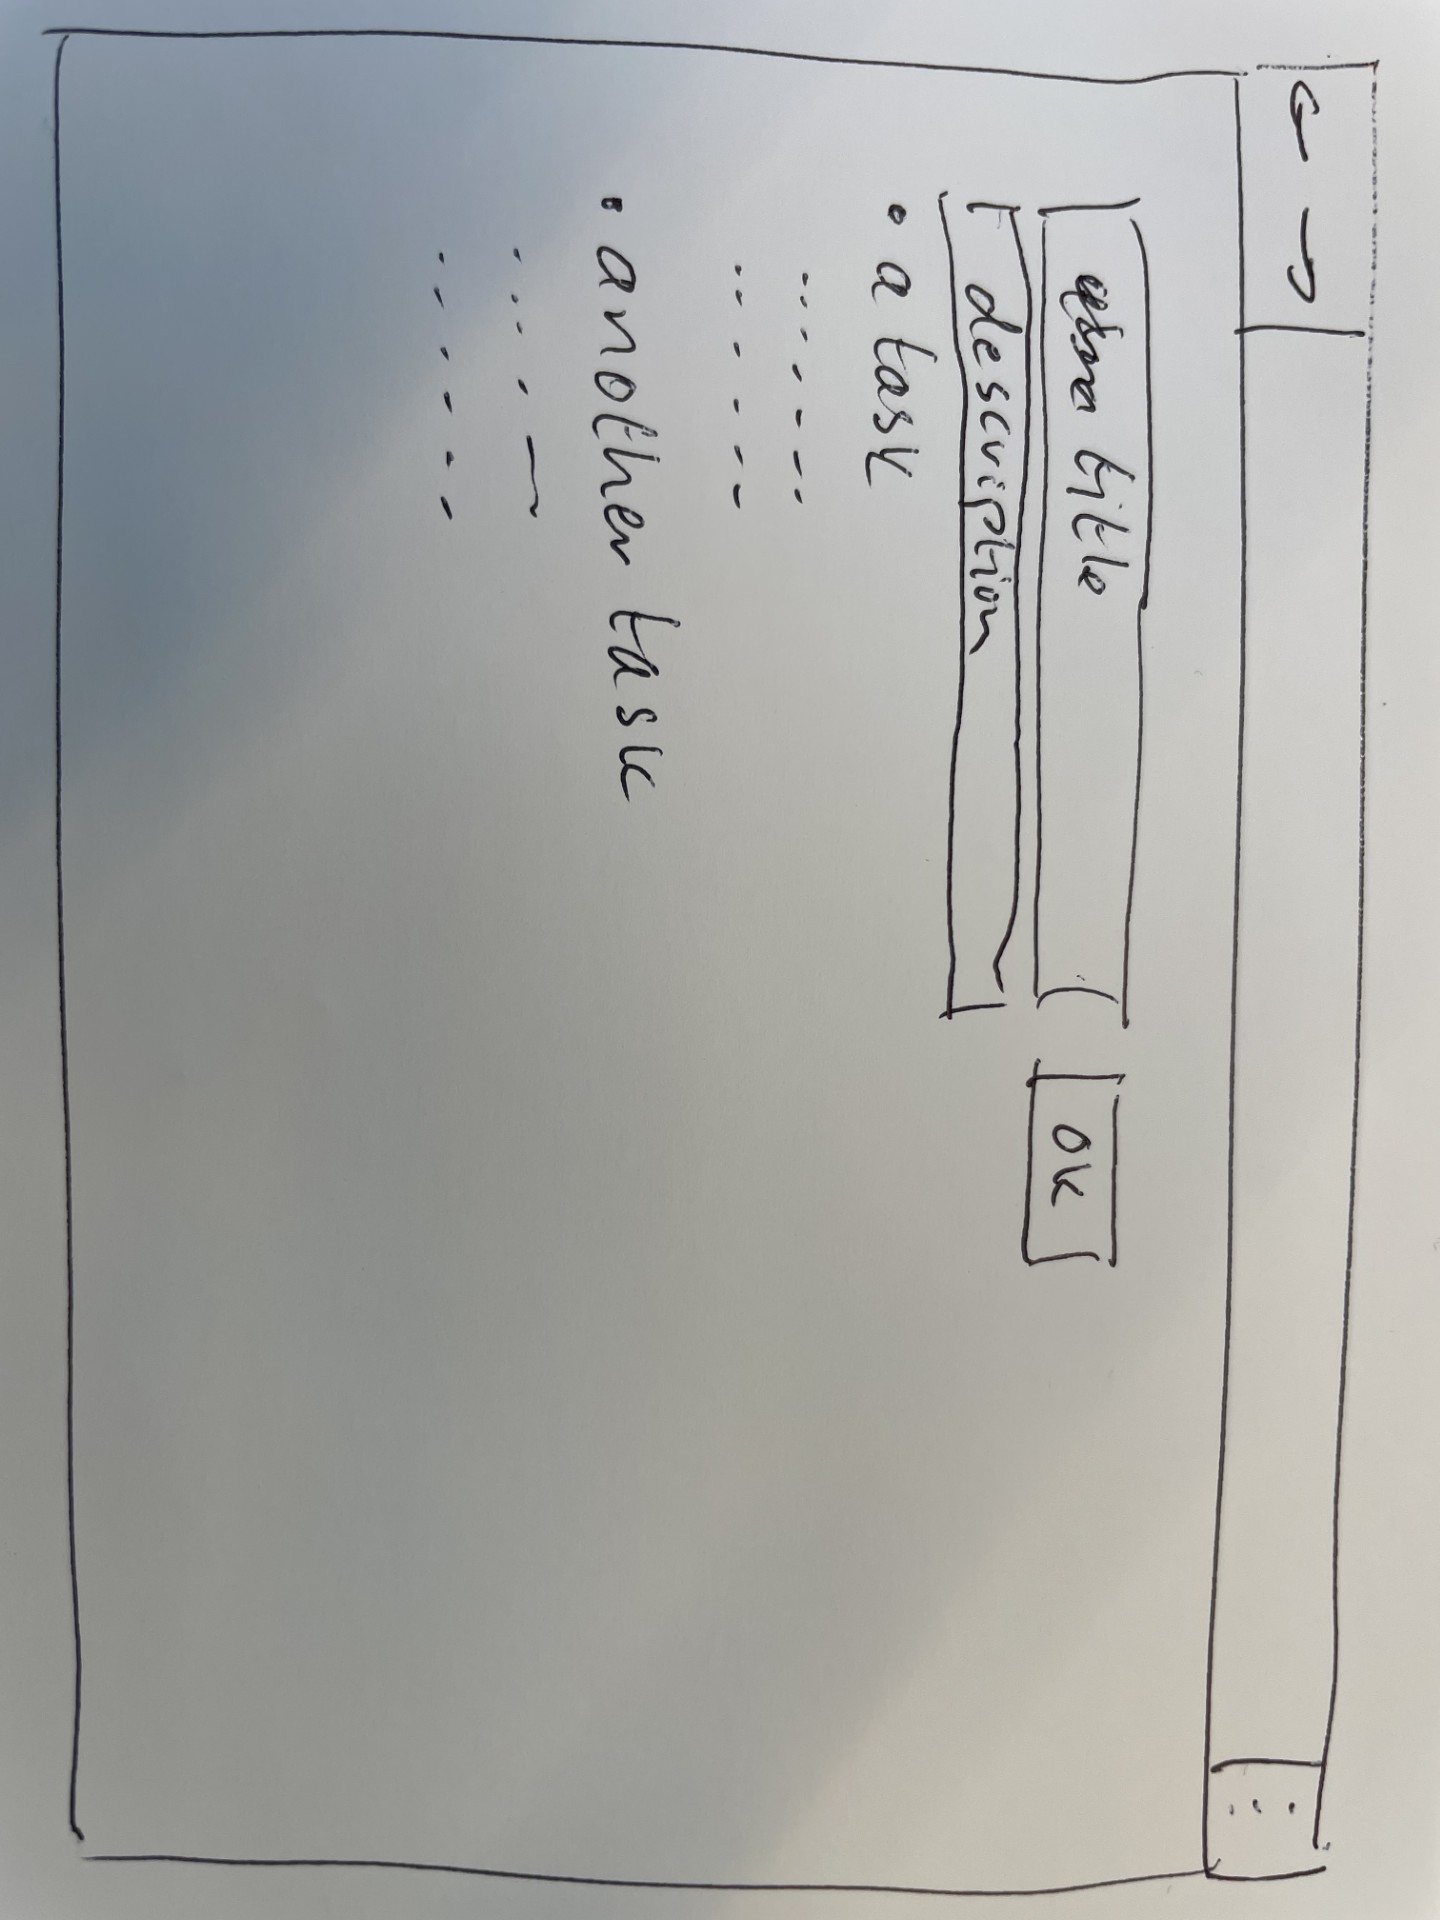 title
OK
description
• a task
• another task